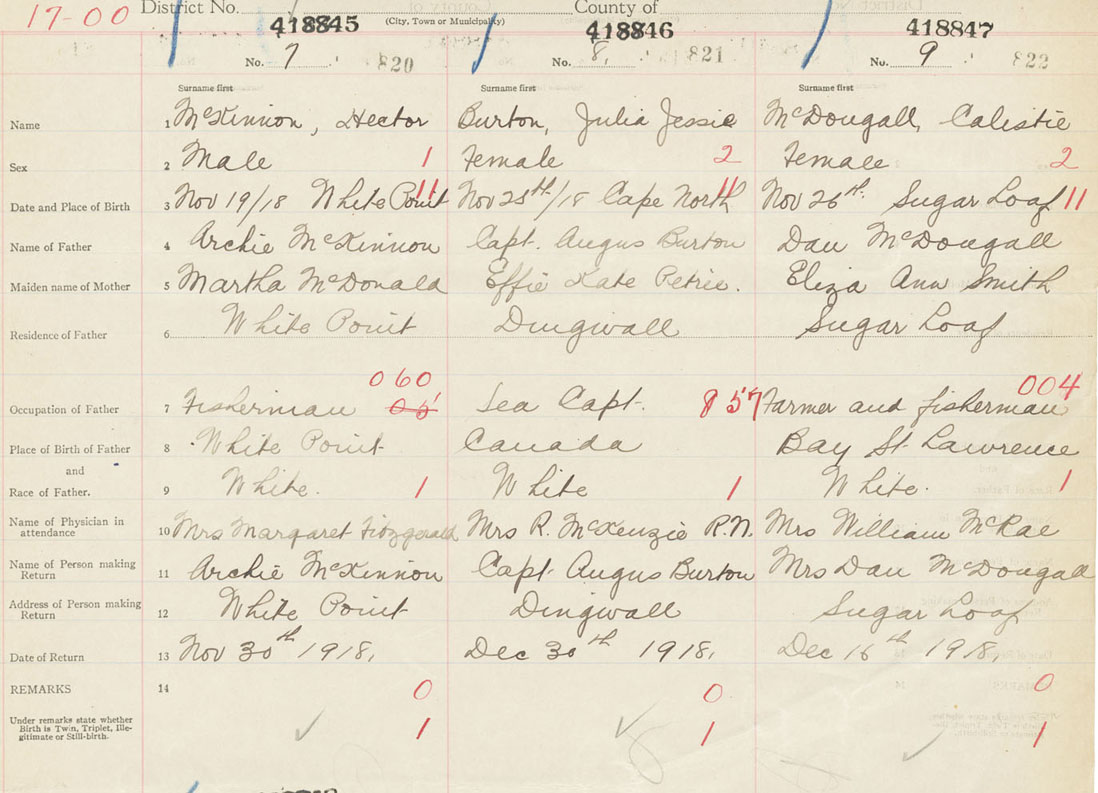 17-00 District No. County of
(City, Town or Municipality)
418845 418846 418847
No. 7 820 No. 8, 821 No. 9 822
Surname first Surname first Surname first
Name 1 McKinnon, Hector Burton, Julia Jessie McDougall, Calistie
Sex 2 Male 1 Female 2 Female 2
Date and Place of Birth 3 Nov 19/18 White Point 11 Nov 25th/18 Cape North 11 Nov 26th. Sugar Loaf 11
Name of Father 4 Archie McKinnon Capt. Angus Burton Dan McDougall
Maiden name of Mother 5 Martha McDonald Effie Kate Petrie. Eliza Ann Smith
Residence of Father 6 White Point Dingwall Sugar Loaf
060 004
Occupation of Father 7 Fisherman 05 Sea Capt. 857 Farmer and fisherman
Place of Birth of Father 8 White Point Canada Bay St Lawrence
and
Race of Father. 9 White. 1 White 1 White. 1
Name of Physician in
attendance 10 Mrs Margaret Fitzgerald Mrs R. McKenzie R.N. Mrs William McRae
Name of Person making
Return 11 Archie McKinnon Capt. Angus Burton Mrs Dan McDougall
Address of Person making
Return 12 White Point Dingwall Sugar Loaf
Date of Return 13 Nov 30th 1918, Dec 30th 1918, Dec 16th 1918,
REMARKS 14 0 0 0
Under remarks state whether
Birth is Twin, Triplet, Ille-
gitimate or Still-birth. 1 1 1